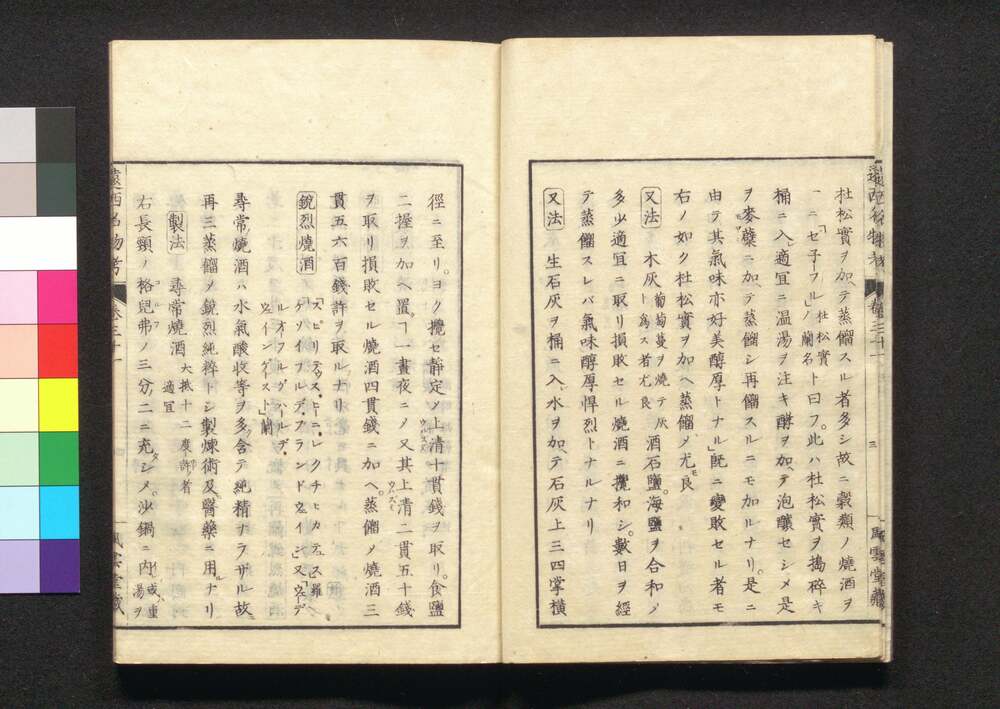 杜松實ヲ加ヘテ蒸餾スル者多シ故ニ穀類ノ燒酒ヲ
一ニ「セ子フルノ杜松實ノ蘭名ト曰フ。此ハ杜松實ヲ搗碎キ
桶ニ入レ適宜ニ温湯ヲ注キ酵ヲ加ヘテ泡釀セシメ是
ヲ麥蘖ニ加ヘテ蒸餾シ再餾スルニモ加ルナリ。是ニ
由テ其氣味亦好美醇厚トナル」既ニ變敗セル者モ
右ノ如ク杜松實ヲ加ヘ蒸餾メ尤モ良
又法 木灰葡萄蔓ヲ燒テ灰ト為ス者尤良 酒石鹽。海鹽ヲ合和ノ
多少適宜ニ取リ損敗セル燒酒ニ攪和シ。數日ヲ經
テ蒸餾スレバ氣味醇厚悍烈トナルナリ
又法 生石灰ヲ桶ニ入レ水ヲ加ヘテ石灰上三四掌横
遠西名物考 卷三十一
三
風雲堂藏
徑ニ至リ。ヨク攪セ静定ノ上清十貫錢ヲ取リ。食鹽
二握ヲ加ヘ置ヿ一晝夜ニノ又其上清二貫五十錢
ヲ取リ損敗セル燒酒四貫錢ニ加ヘ。蒸餾ノ燒酒三
貫五六百錢許ヲ取ルナリ
銳烈燒酒 「スピリテュス、ヒニ、レクチヒカテュス羅」「ゲソイフルデ、ブランドウェイン」又「ウェーデルオフルグハールデ、ウェインゲースト」蘭
尋常燒酒ハ水氣酸收等ヲ多ク含テ純精ナラザル故ニ
再三蒸餾ノ銳烈純粹トシ製煉術及ヒ醫藥ニ用ルナリ
製法 尋常燒酒大抵十二度許者適宜
右長頸ノ格兒弗ノ三分ノ二ニ充シメ。沙鍋ニ内レ或重湯ヲ
遠西名物考 卷三十一
風雲堂藏